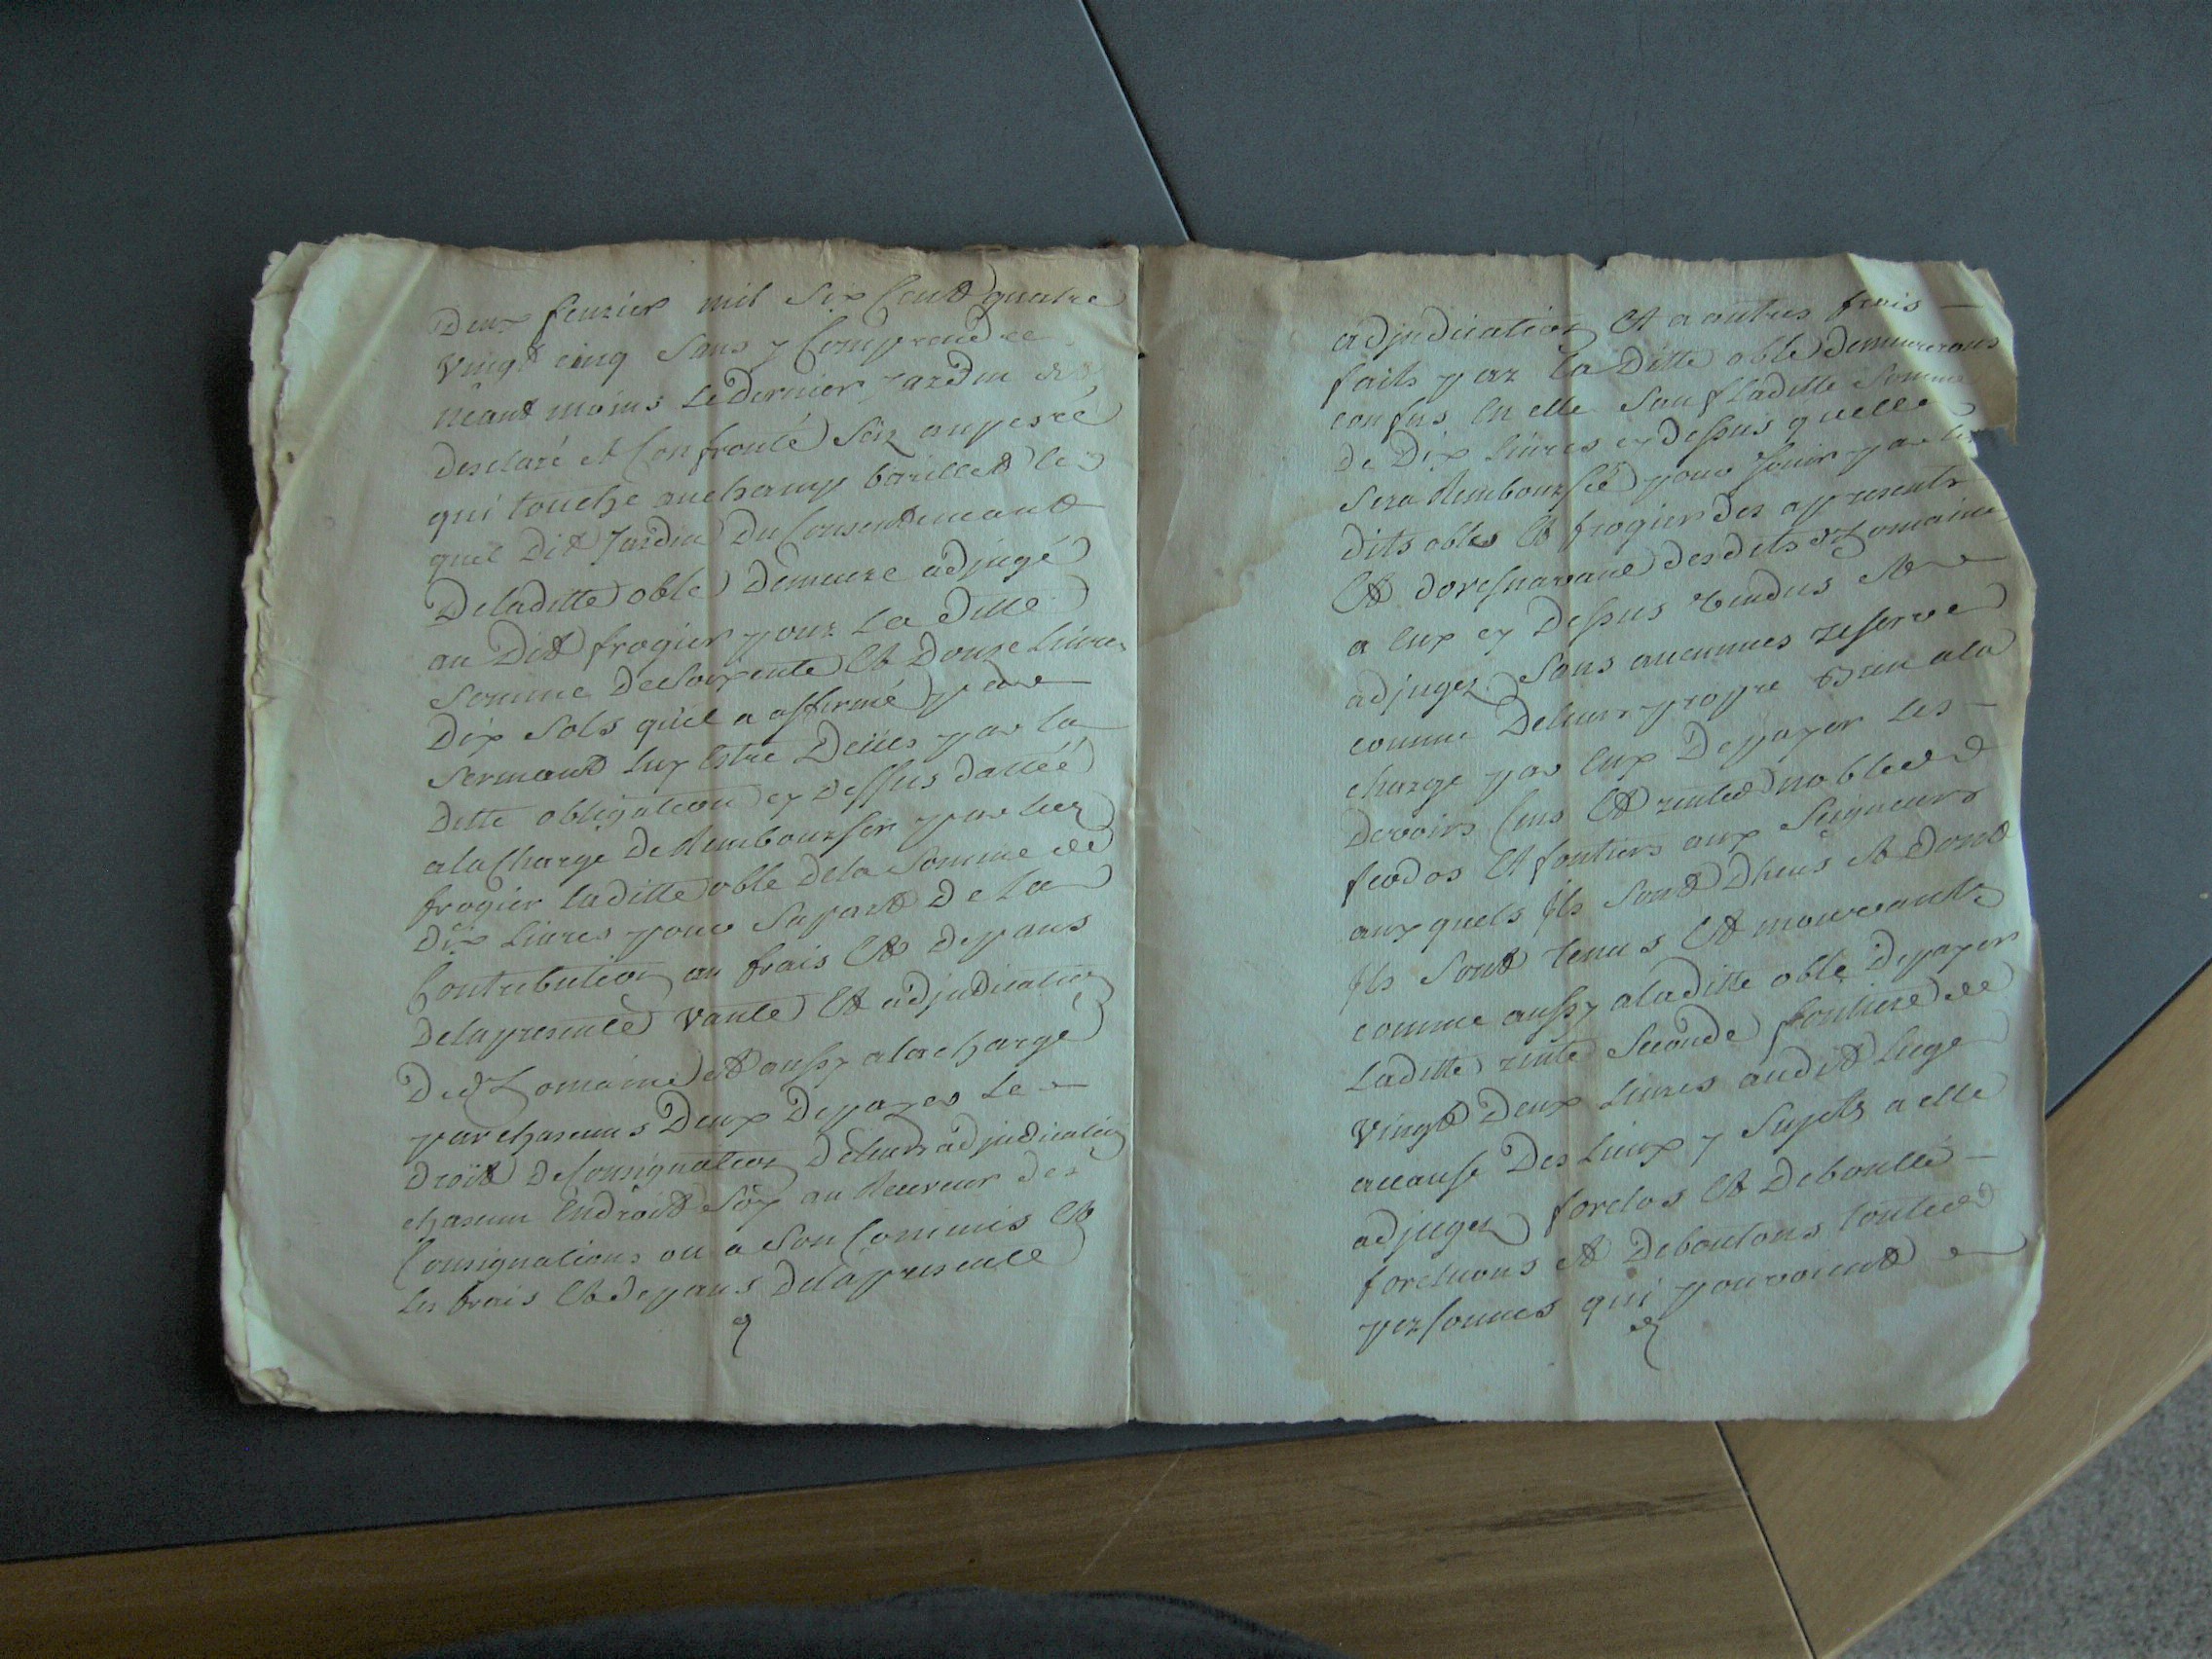 Deux feurier mil Six Cent quatre
vingt cinq Sans y Comprendre
neant moins Le Dernier jardin
desclaré et Confronté
qui touche auchamp barillet le
quel Dit Jardin Du Consentement
Deladitte oble Demeure adjugé
au Dit frogier pour La ditte
Somme de Soixente Et Douze Liures
Dix Sols quil a affirmé par
Sermant luy Estre Deües par la
ditte obligation cy dessus dattée
ala Charge De Rembourser par luy
frogier laditte oble dela Somme de
Dix Liures pour sapart De La
Contribution au frais Et depans
Delapresente vante Et adjudication
Domaine et aussy ala charge
par chascuns Deux Depayer Le
droit de Consignation de leurs adjudication
chascun Endroit Soy au Receueur des
Consignations ou a Son Commis Et
les frais Et depans delapresente
adjudication Et a autres frais
faits par la Ditte oble demeureront
confus En elle Sauf laditte Somme
de Dix liures cy dessus quelle
Sera Rembourseé pour Jouir par les
dits obles Et frogier des apresents
Et doresnavant des dits Domaine
a Eux cy dessus vendus Et
adjugez Sans aucunnes reserve
comme De leur propre Bien ala
charge par Eux Depayer Les
devoirs Cens Et rentes nobles
feodos Et fontiers aux Seigneurs
aux quels Ils Sont Dheus Et Dont
Ils Sont tenus Et mouvants
comme aussy aladitte oble Depayer
Laditte rente Seconde fontiere de
vingt Deux Liures audit Liege
acause Des Lieux y Sujets a elle
adjugez forclos Et Deboutté
forcluons Et Deboutons touttes
personnes qui pouroint